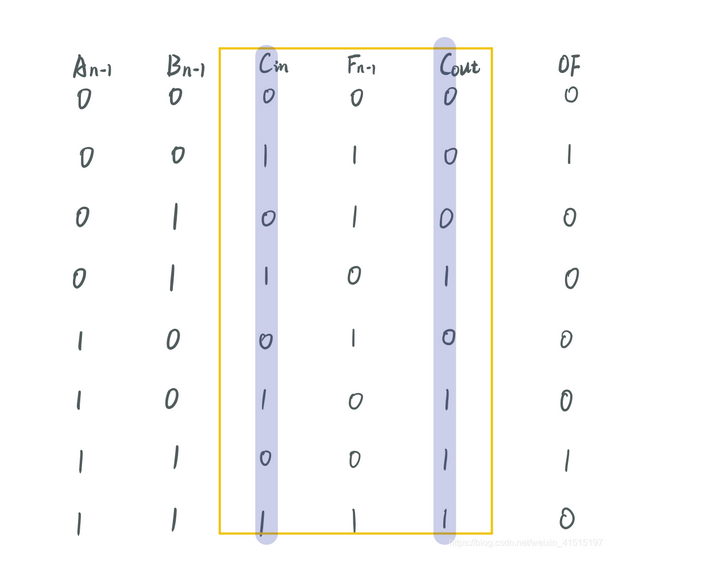 An-1 Bn-1 Cin Fn-1 Cout OF
0 0 0 0 0 0
0 0 1 1 0 1
0 1 0 1 0 0
0 1 1 0 1 0
1 0 0 1 0 0
1 0 1 0 1 0
1 1 0 0 1 1
1 1 1 1 1 0
https://blog.csdn.net/weixin_41515197